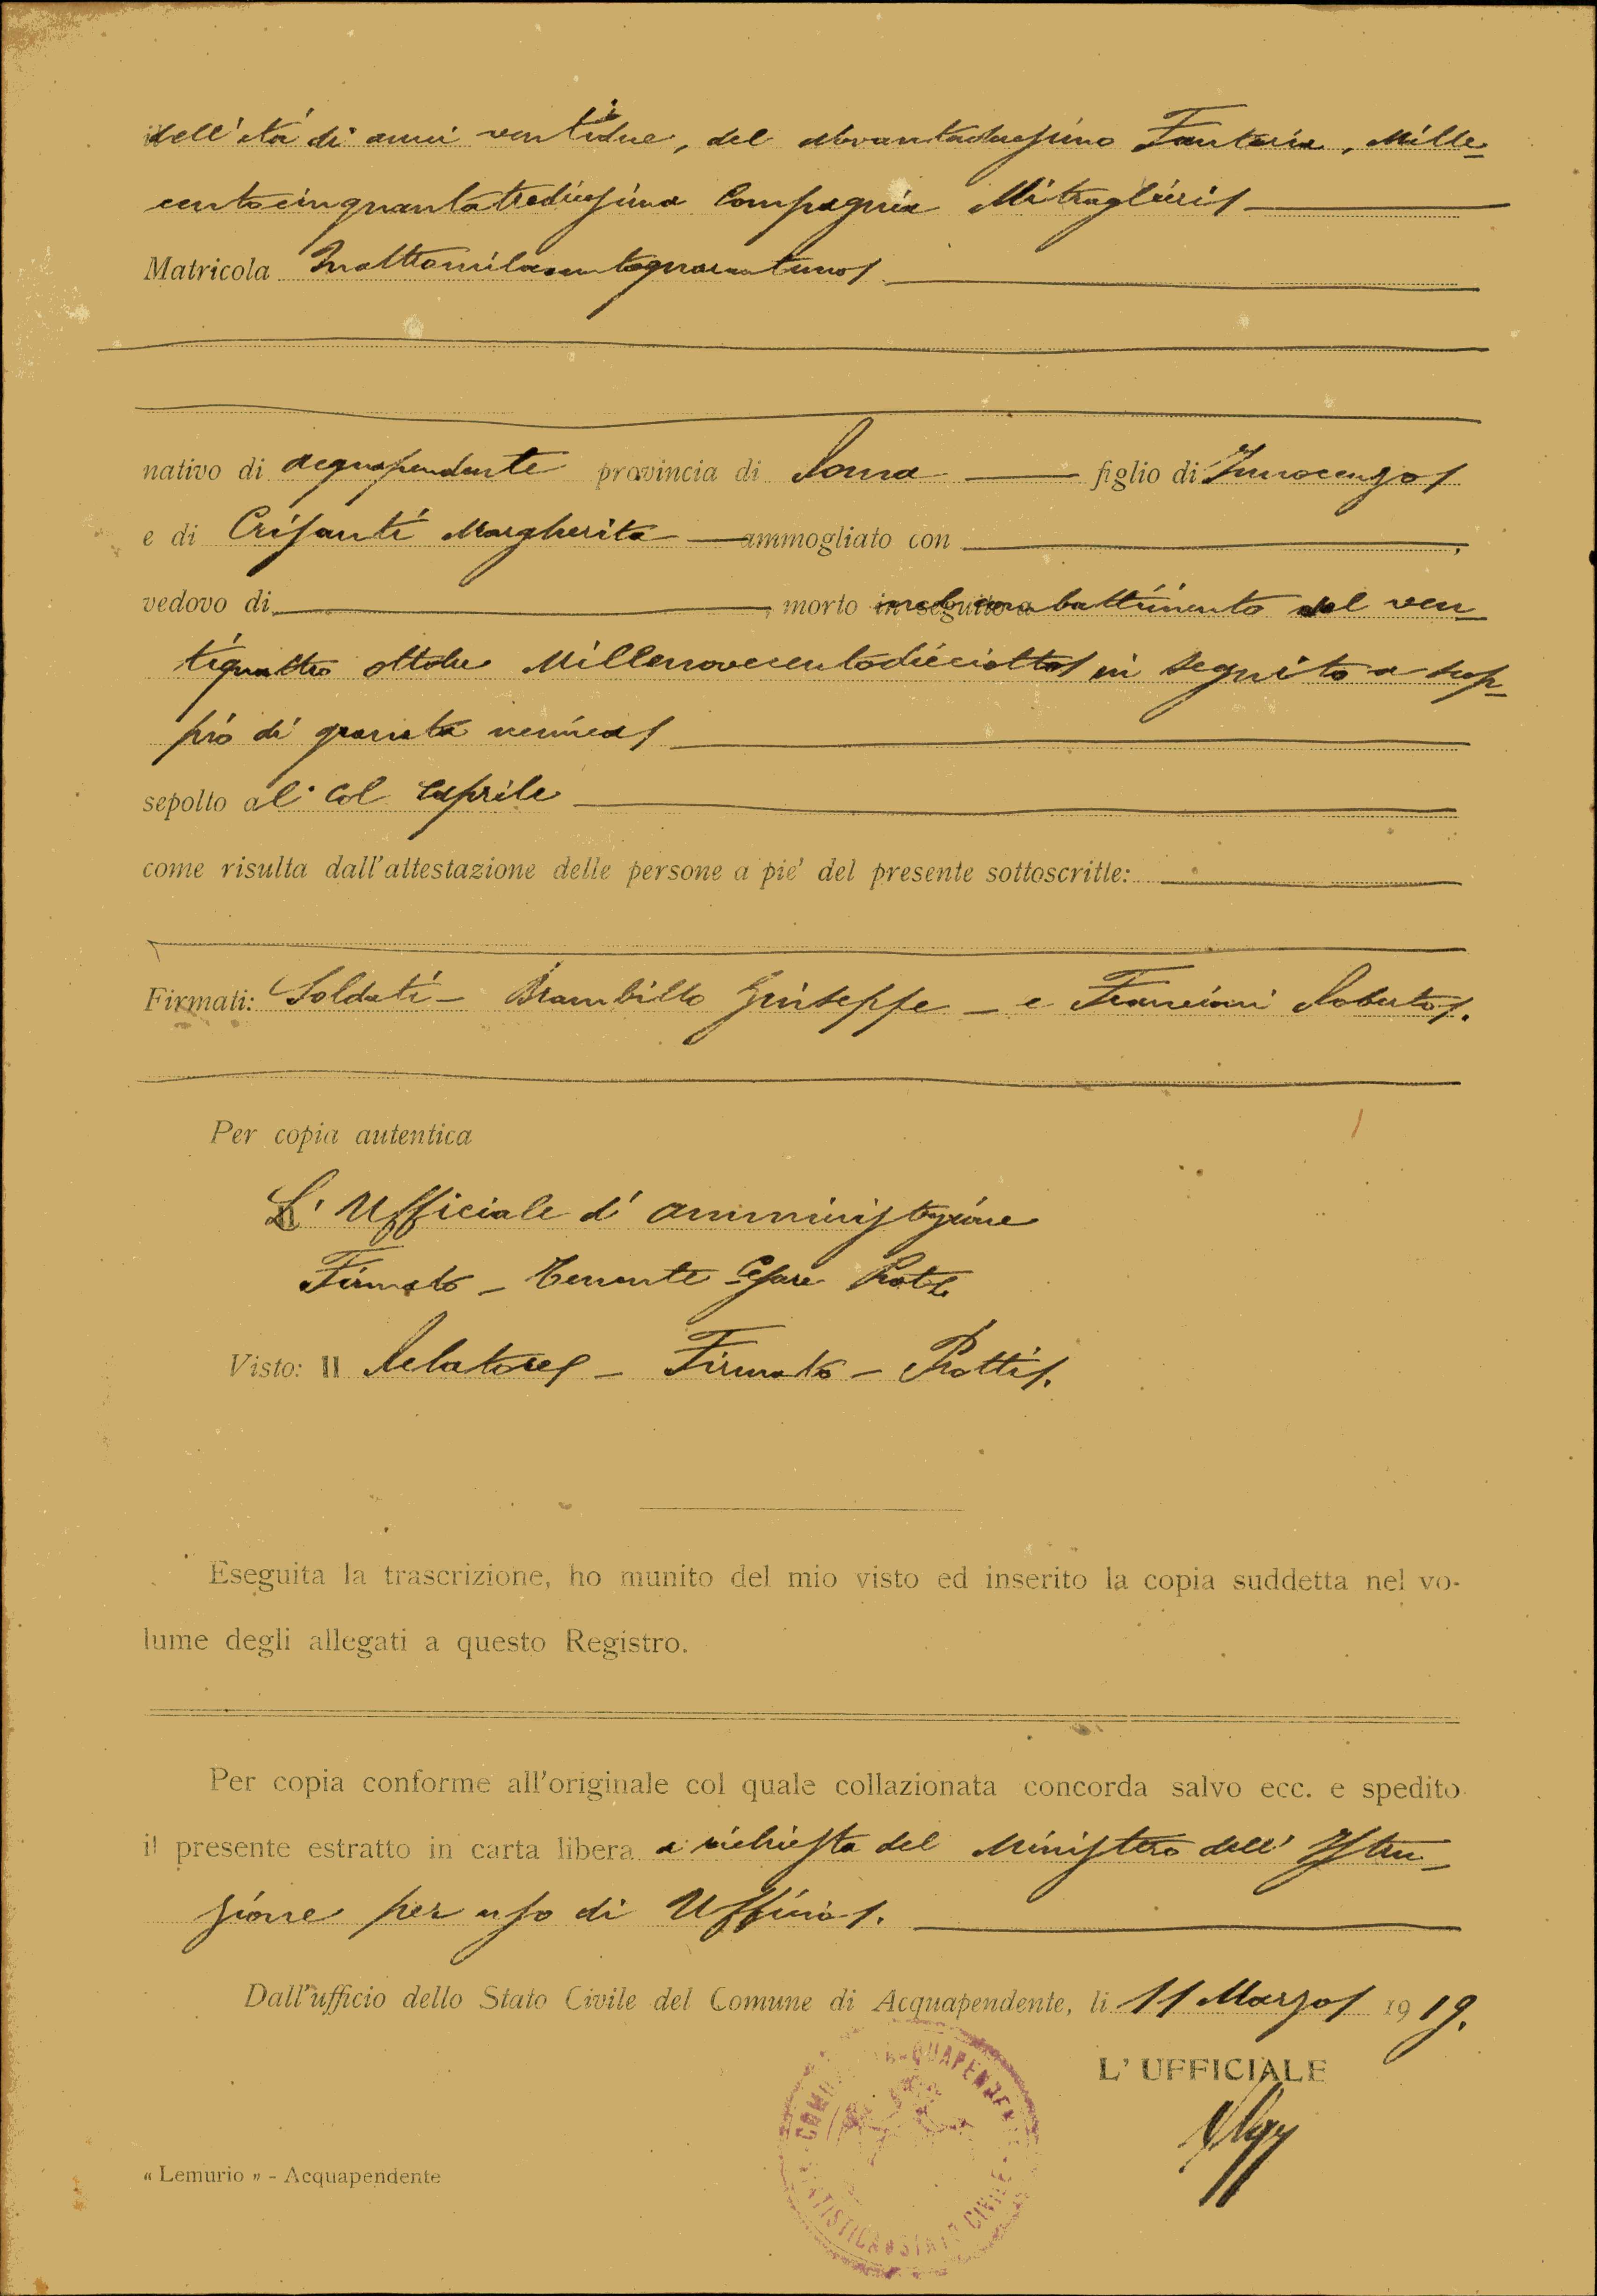 dell'età di anni ventidue, del Fanteria, Mille-
centocinquantatredicesima Compagnia Mitraglieri
Matricola
nativo di Acquapendente provincia di Roma figlio di Innocenzo
e di Crisanti Margherita ammogliato con
vedovo di , morto in seguito a battimento del ven-
tiquattro ottobre Millenovecentodiciotto in seguito a scop-
pio di granata nemica
sepolto al Col Caprile
come risulta dall'attestazione delle persone a piè del presente sottoscritte:
Firmati: Soldati - Brambillo Giuseppe - e Francioni Roberto.
Per copia autentica
L'Ufficiale d'amministrazione
Firmato - Tenente Cesare
Visto: Il Relatore - Firmato -
Eseguita la trascrizione, ho munito del mio visto ed inserito la copia suddetta nel vo-
lume degli allegati a questo Registro.
Per copia conforme all'originale col quale collazionata concorda salvo ecc. e spedito
il presente estratto in carta libera a richiesta del Ministero dell'Istru-
zione per uso di Ufficio.
Dall'ufficio dello Stato Civile del Comune di Acquapendente, li 11 Marzo 1919.
L'UFFICIALE
COMUNE DI ACQUAPENDENTE
STATISTICA E STATO CIVILE
« Lemurio » - Acquapendente